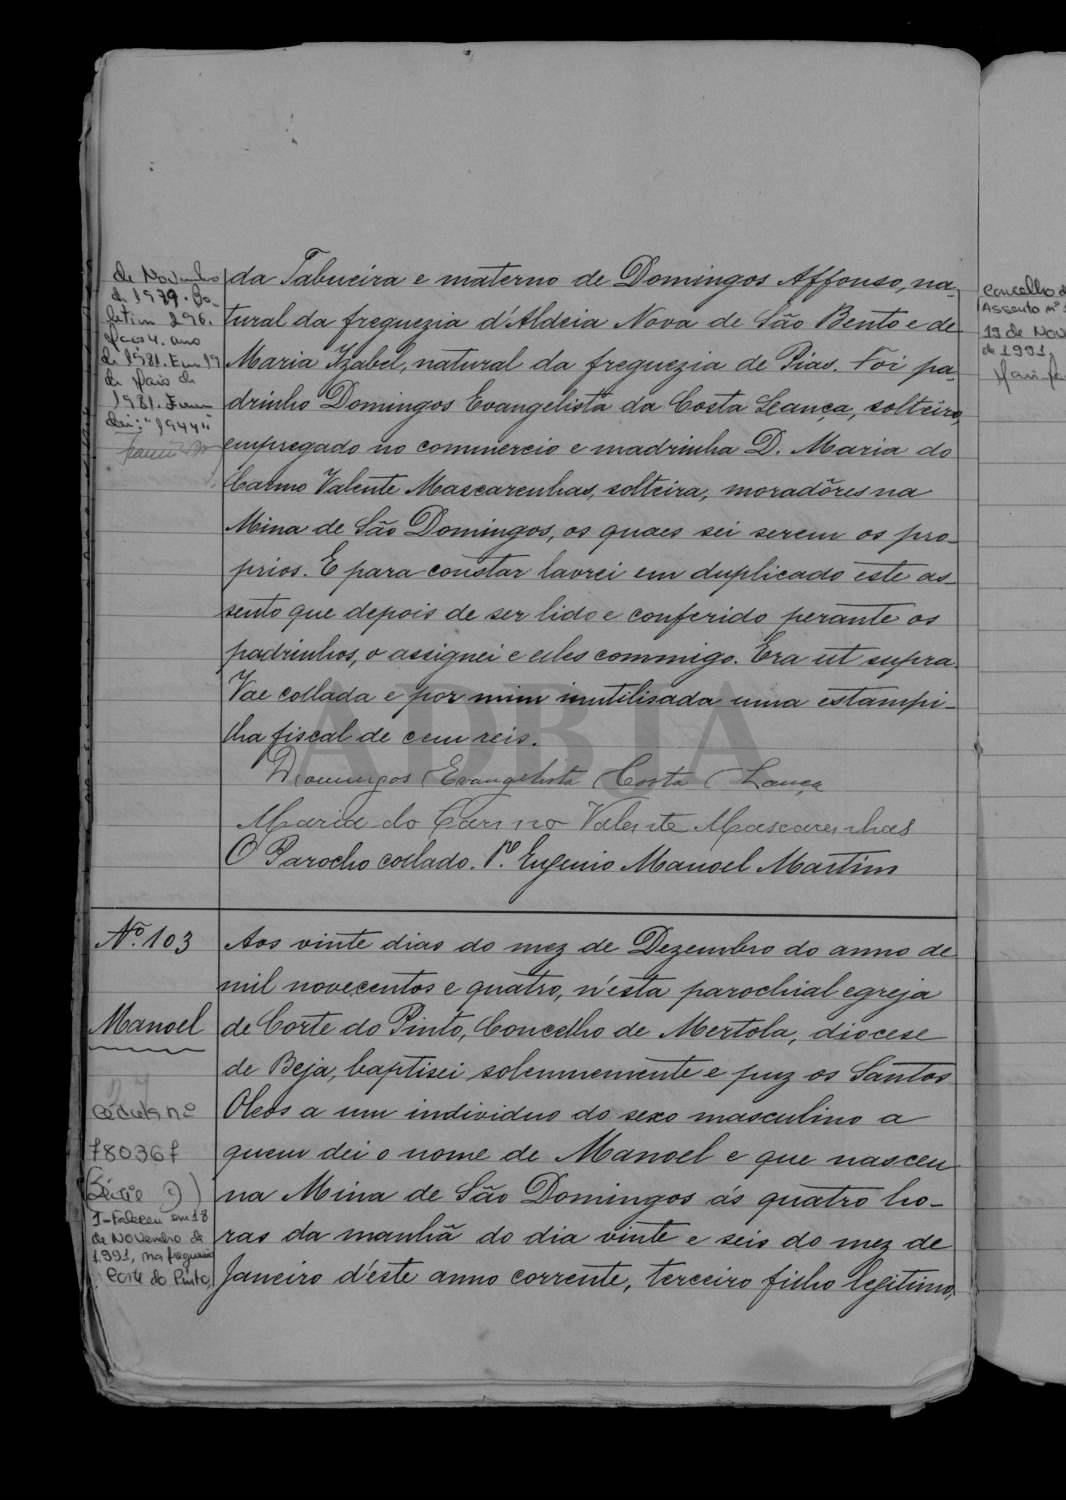 de Novembro
de 1979. Bo-
letim 296.
Maço 4. ano
de 1981. Em 19
de Maio de
1981.
da Tabueira e materno de Domingos Affonso, na-
tural da freguezia d'Aldeia Nova de São Bento e de
Maria Izabel, natural da freguezia de Pias. Foi pa-
drinho Domingos Evangelista da Costa Leança, solteiro,
empregado no commercio e madrinha D. Maria do
Carmo Valente Mascarenhas, solteira, moradôres na
Mina de São Domingos, os quaes sei serem os pro-
prios. E para constar lavrei em duplicado este as-
sento que depois de ser lido e conferido perante os
padrinhos, o assignei e elles commigo. Era ut supra.
Vae collada e por mim inutilisada uma estampi-
lha fiscal de cem reis.
Domingos Evangelista Costa Lança
Maria do Carmo Valente Mascarenhas
O Parocho collado. Pe. Eugenio Manoel Martins
ADBJA
Nº. 103
Manoel
cédula nº
780367
(Série )
1-Faleceu em 18
de Novembro de
1991, na freguesia
Corte do Pinto,
Aos vinte dias do mez de Dezembro do anno de
mil novecentos e quatro, n'esta parochial egreja
de Corte do Pinto, Concelho de Mertola, diocese
de Beja, baptisei solemnemente e puz os Santos
Oleos a um individuo do sexo masculino a
quem dei o nome de Manoel e que nasceu
na Mina de São Domingos ás quatro ho-
ras da manhã do dia vinte e seis do mez de
Janeiro d'este anno corrente, terceiro filho legitimo,
Concelho d
Assento nº
19 de Nov
de 1991